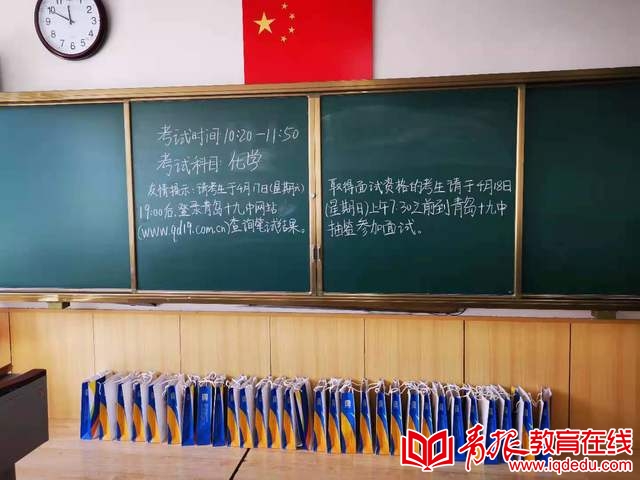 考试时间 10:20-11:50
考试科目: 化学
友情提示: 请考生于4月17日(星期六)
19:00后,登录青岛十九中网站
(www.qd19.com.cn)查询笔试结果。
取得面试资格的考生请于4月18日
(星期日)上午7:30之前到青岛十九中
抽签参加面试。
青报教育在线
www.iqdedu.com